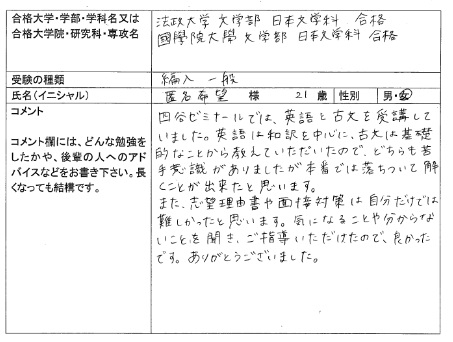 合格大学・学部・学科名又は
合格大学院・研究科・専攻名
法政大学 文学部 日本文学科 合格
國學院大學 文学部 日本文学科 合格
受験の種類
編入 一般
氏名(イニシャル)
匿名希望 様 21 歳 性別 男・女
コメント
コメント欄には、どんな勉強を
したかや、後輩の人へのアド
バイスなどをお書き下さい。長
くなっても結構です。
四谷ゼミナールでは、英語と古文を受講して
いました。英語は和訳を中心に、古文は基礎
的なことから教えていただいたので、どちらも苦
手意識がありましたが本番では落ちついて解
くことが出来たと思います。
また、志望理由書や面接対策は自分だけでは
難しかったと思います。気になることや分からな
いことを聞き、ご指導いただけたので、良かった
です。ありがとうございました。